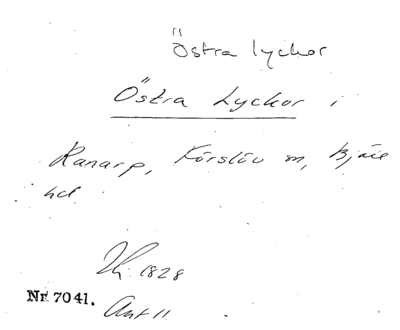 Östra lyckor
Östra Lyckor i
Ranarp, Förslöv sn, Bjäre
hd
1828
Nr 7041.